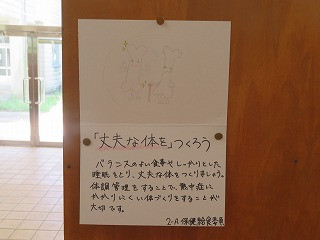 「丈夫な体を」つくろう
バランスのよい食事やしっかりとした
睡眠をとり、丈夫な体をつくりましょう。
体調管理をすることで、熱中症に
かかりにくい体づくりをすることが
大切です。
2-A 保健給食委員